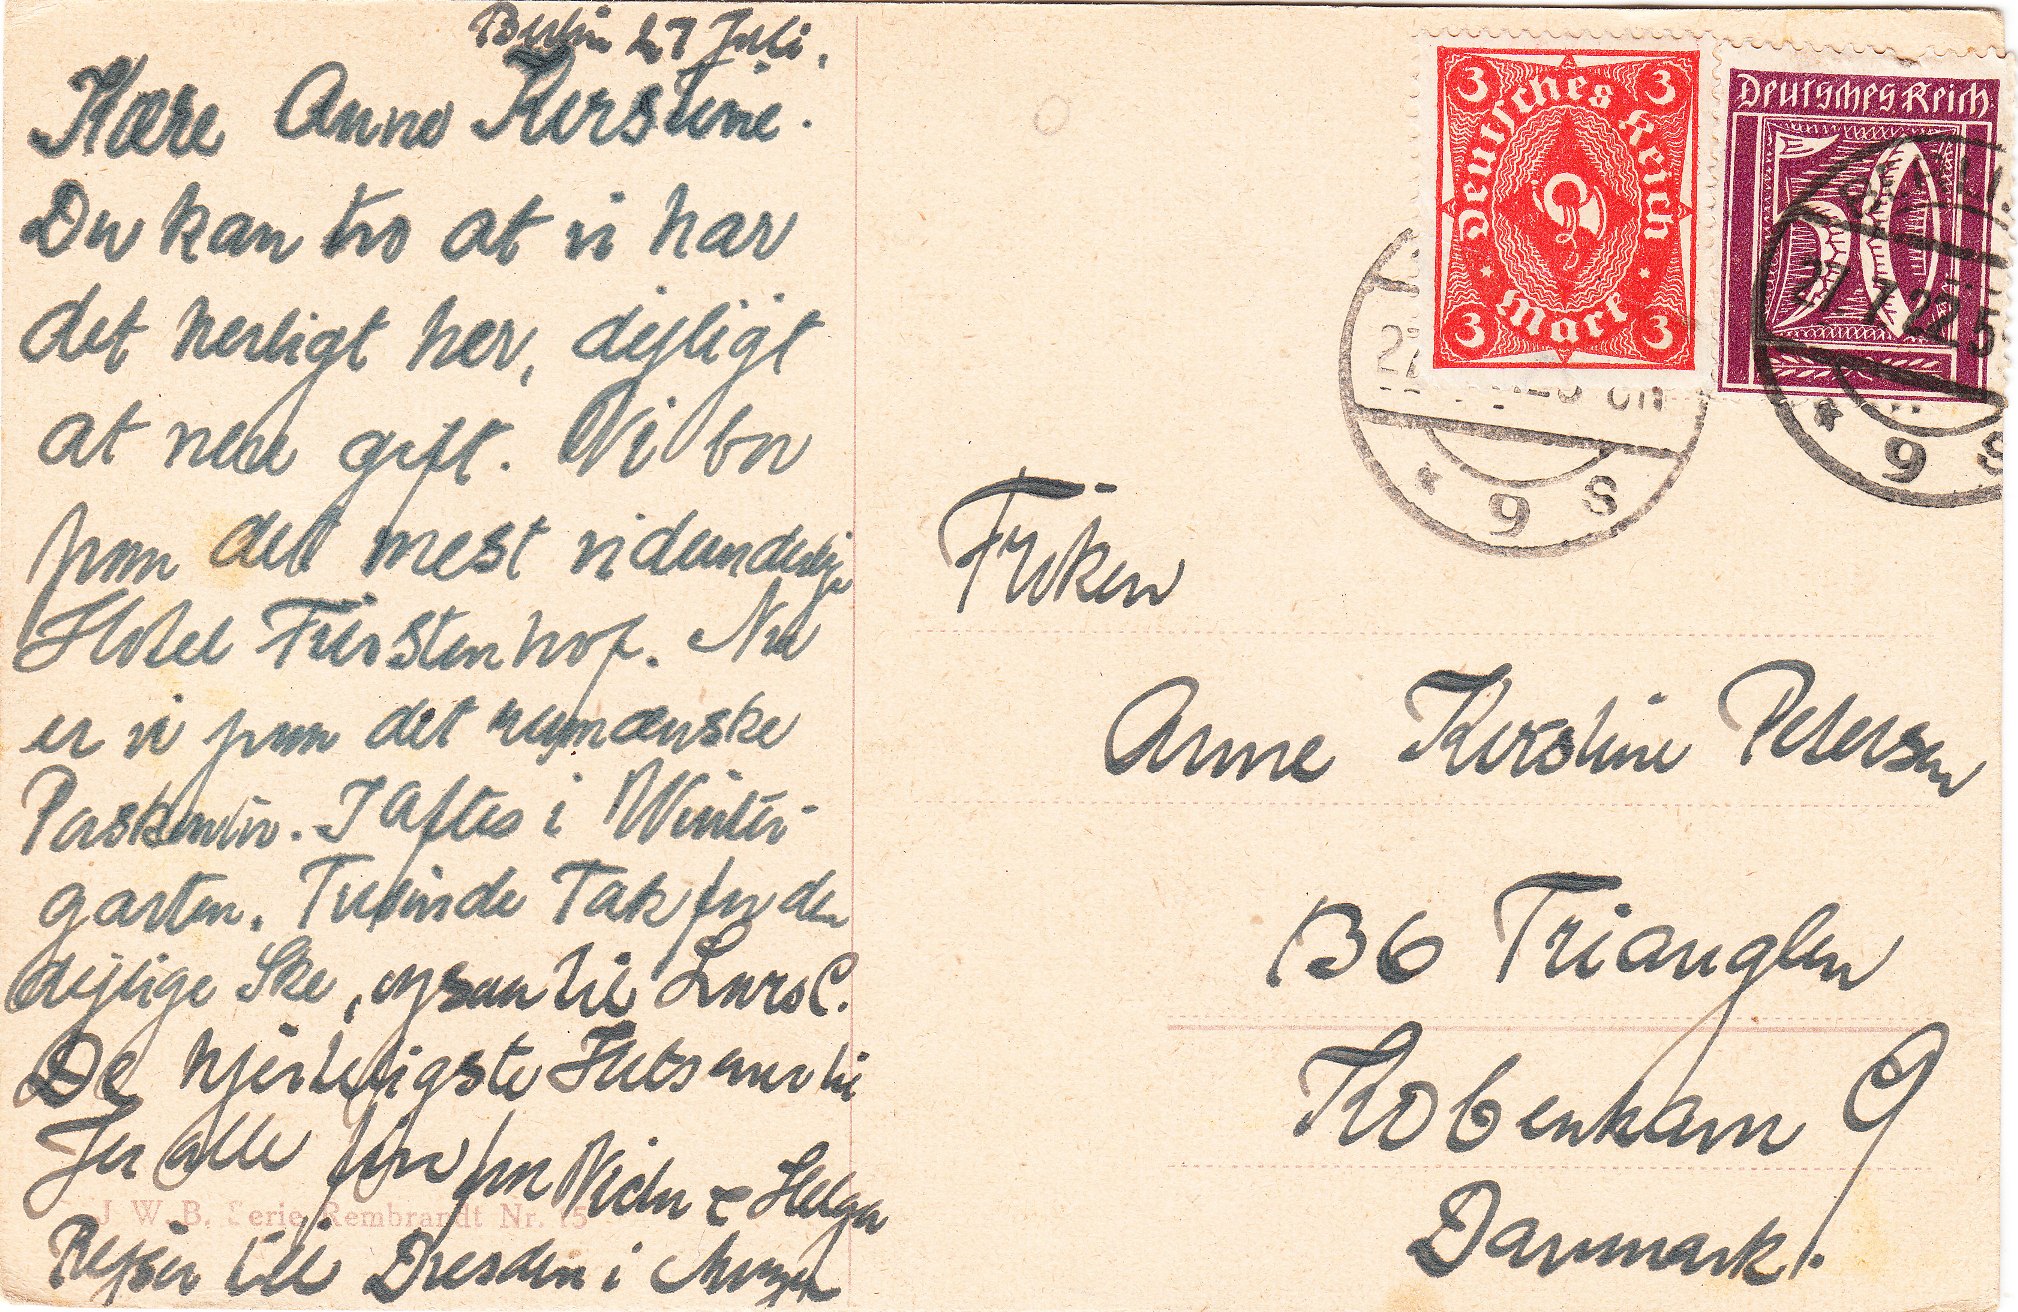 Berlin 27 Juli.
Kære Anne Kerstine.
Du kan tro at vi har
det herligt her, dejligt
at være gift. Vi bor
paa det mest vidunderlige
Hotel Fürstenhof. Nu
er vi paa det rumænske
. I aftes i Winter
garten. Tusinde Tak for den
dejlige Ske, ogsaa til Lars C.
De hjerteligste Hilsener til
Jer alle fra & Helga
Rejser til Dresden i Morgen
J. W. B. Serie Rembrandt Nr. 15
3 3
Deutsches Reich
3 Mark 3
Deutsches Reich
50
BERLIN
27.7.22.5
* 9 S
* 9 S
Frøken
Anne Kirstine Petersen
B6 Trianglen
København Ø
Danmark.